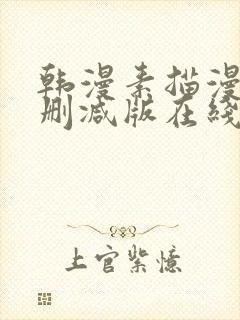 韩漫素描漫
删减版在线
上官紫忆